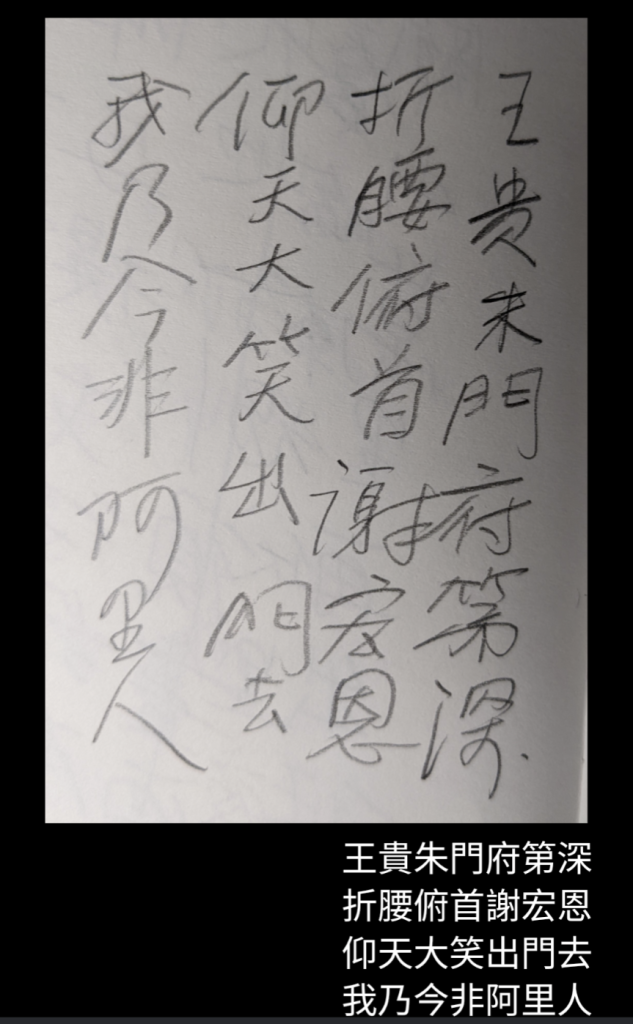 王貴朱門府第深
折腰俯首謝宏恩
仰天大笑出門去
我乃今非阿里人
王貴朱門府第深
折腰俯首謝宏恩
仰天大笑出門去
我乃今非阿里人